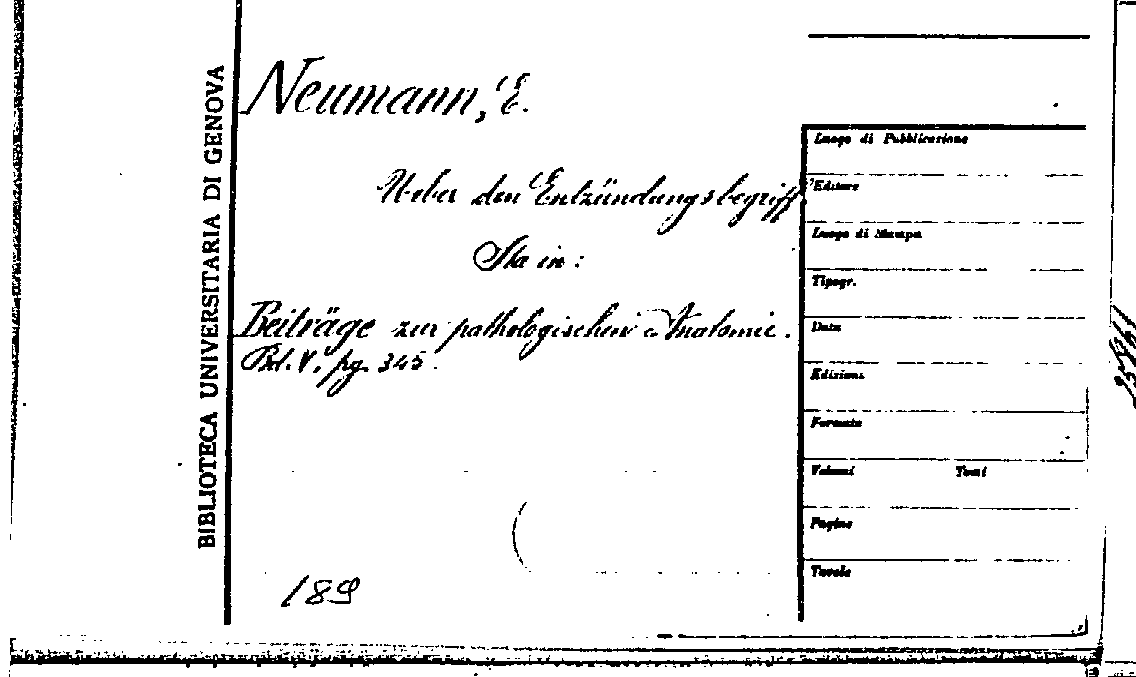 BIBLIOTECA UNIVERSITARIA DI GENOVA
Neumann, E.
Ueber den Entzündungsbegriff.
Sta in:
Beiträge zur pathologischen Anatomie.
Bd. V, pg. 345.
189
Luogo di Pubblicazione
Editore
Luogo di Stampa
Tipogr.
Data
Edizione
Formato
Volumi Tomi
Pagine
Tavole